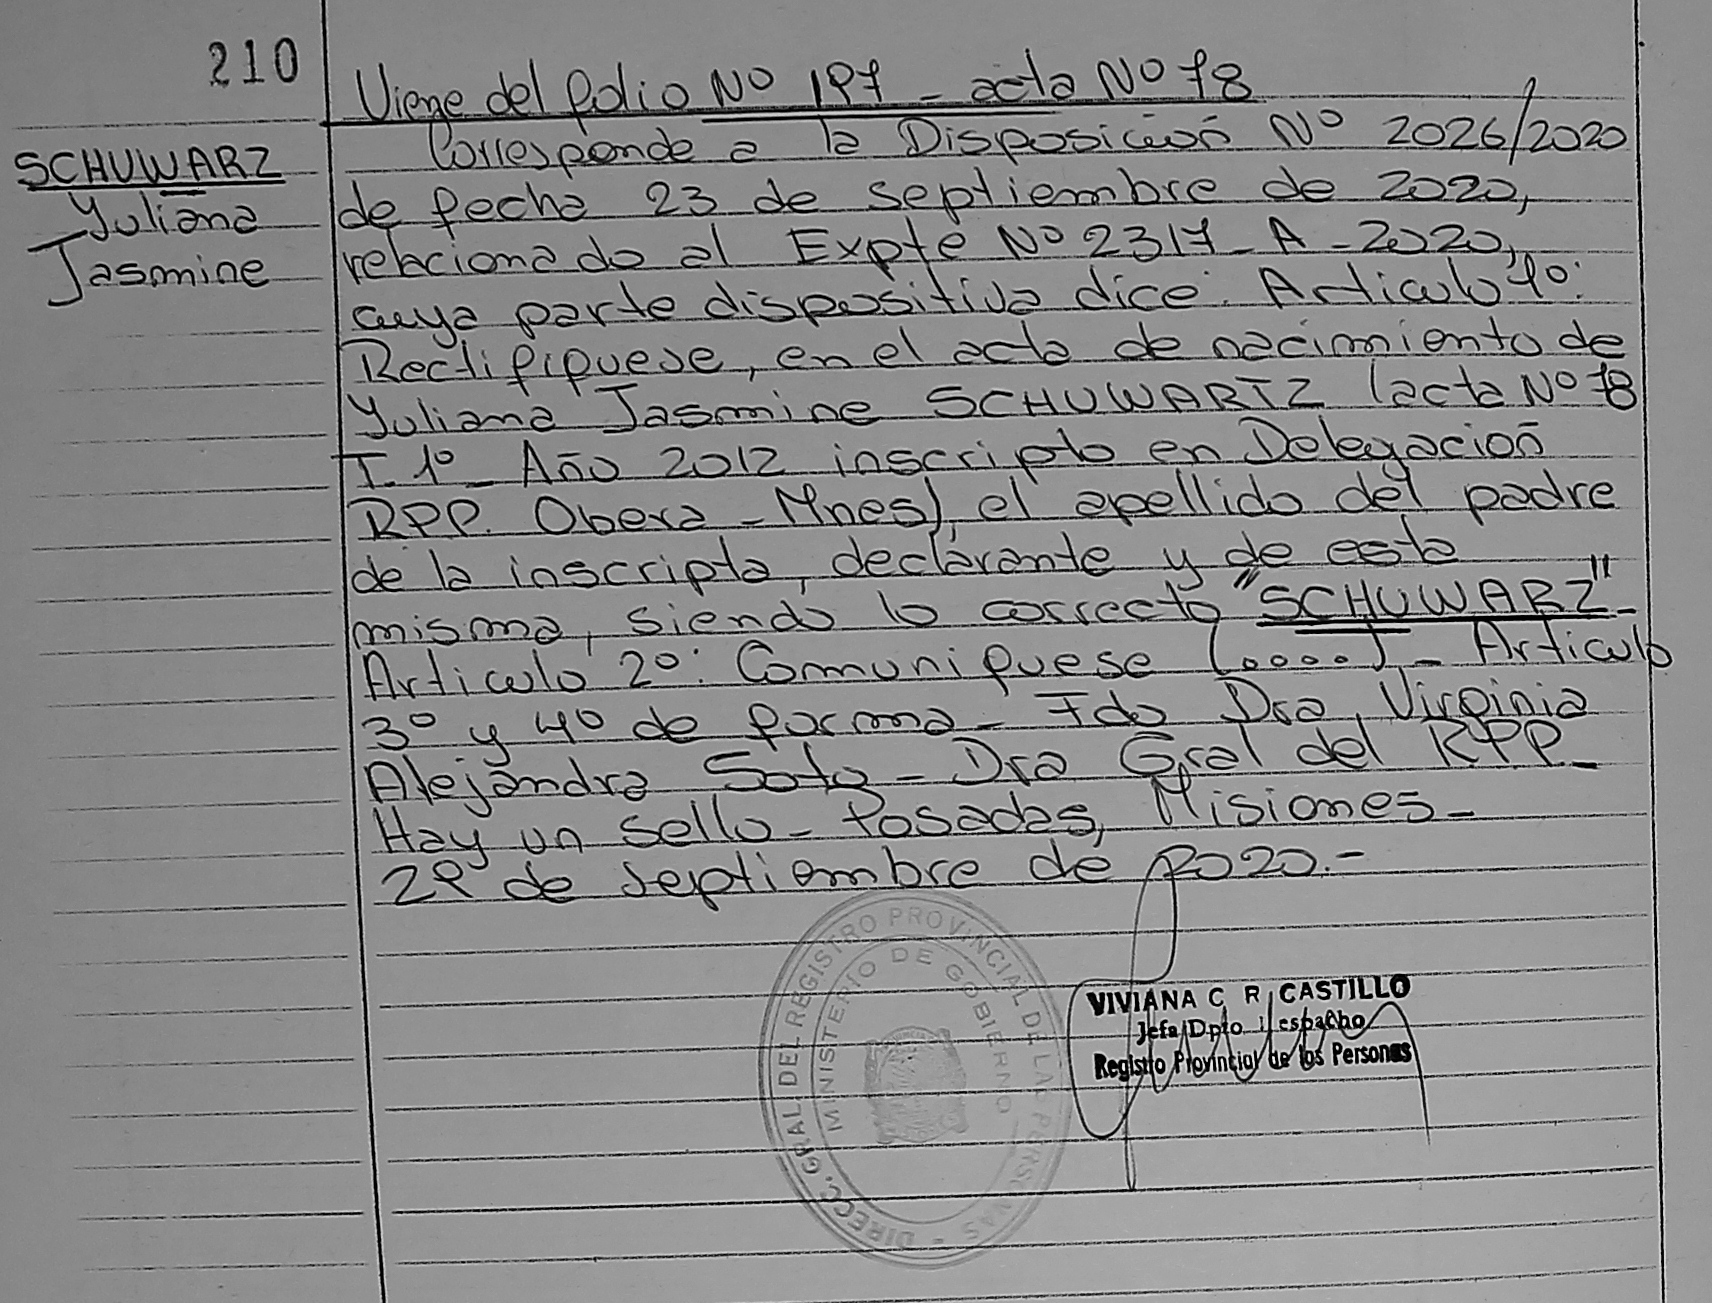 210
Viene del folio Nº 197 - acta Nº 78
SCHUWARZ
Yuliana
Jasmine
Corresponde a la Disposición Nº 2026/2020
de fecha 23 de septiembre de 2020,
relacionado al Expte Nº 2317 - A - 2020,
cuya parte dispositiva dice: Articulo 1º:
Rectifiquese, en el acta de nacimiento de
Yuliana Jasmine SCHUWARTZ (acta Nº 78
T. 1º - Año 2012 inscripto en Delegación
RPP. Obera - Mnes), el apellido del padre
de la inscripta, declarante y de esta
misma, siendo lo correcto "SCHUWARZ" -
Articulo 2º: Comuniquese (....) - Articulo
3º y 4º de forma - Fdo Dra. Virginia
Alejandra Soto - Dra Gral del RPP -
Hay un sello - Posadas, Misiones -
29 de septiembre de 2020.-
DIRECC. GRAL. DEL REGISTRO PROVINCIAL DE LAS PERSONAS -
MINISTERIO DE GOBIERNO
VIVIANA C R CASTILLO
Jefa Dpto Despacho
Registro Provincial de los Personas